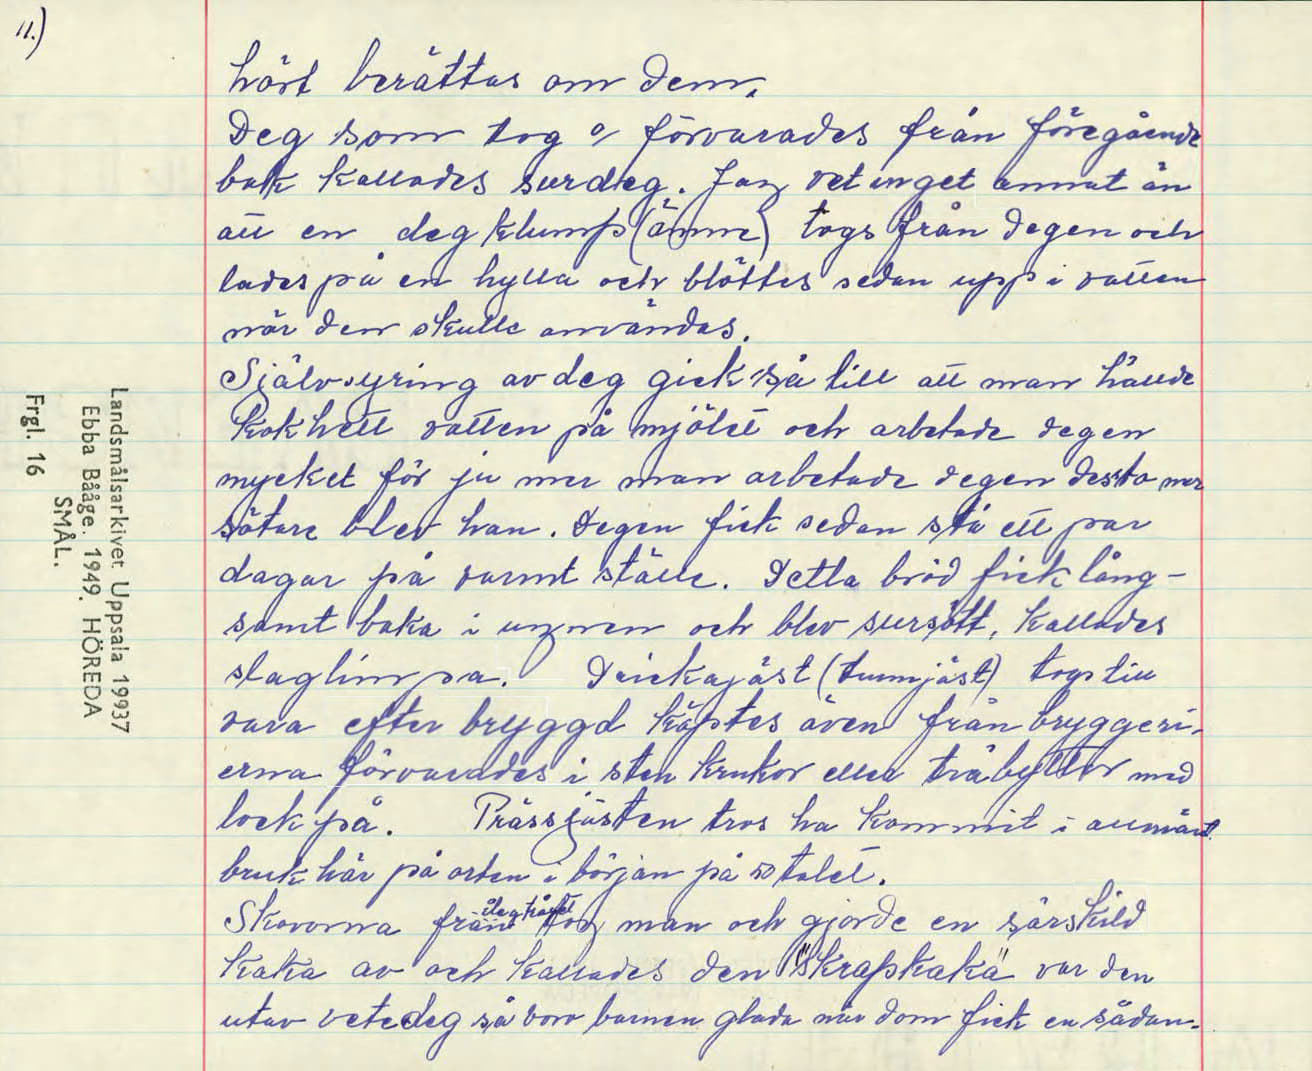 11.)
hört berättas om dem.
Deg som tog o förvarades från föregående
bak kallades surdeg. Jag vet inget annat än
att en deg klump (ämne) togs från degen och
lades på en hylla och blöttes sedan upp i vatten
när den skulle användas.
Självsyring av deg gick så till att man hällde
kokhett vatten på mjölet och arbetade degen
mycket för ju mer man arbetade degen desto mer
sötare blev han. Degen fick sedan stå ett par
dagar på varmt ställe. Detta bröd fick lång-
samt baka i ungnen och blev sursött, kallades
slaglimpa. Drickajäst (tunnjäst) togs till
vara efter bryggd köptes även från bryggeri-
erna förvarades i sten krukor eller träbyttor med
lock på. Prässjästen tros ha kommit i allmänt
bruk här på orten i början på talet.
Skovorna från degtråget tog man och gjorde en särskild
kaka av och kallades den "skrapkaka" var den
utav vetedeg så vorv barnen glada när dom fick en sådan.
Landsmålsarkivet Uppsala 19937
Ebba Bååge. 1949. HÖREDA
SMÅL.
Frgl. 16